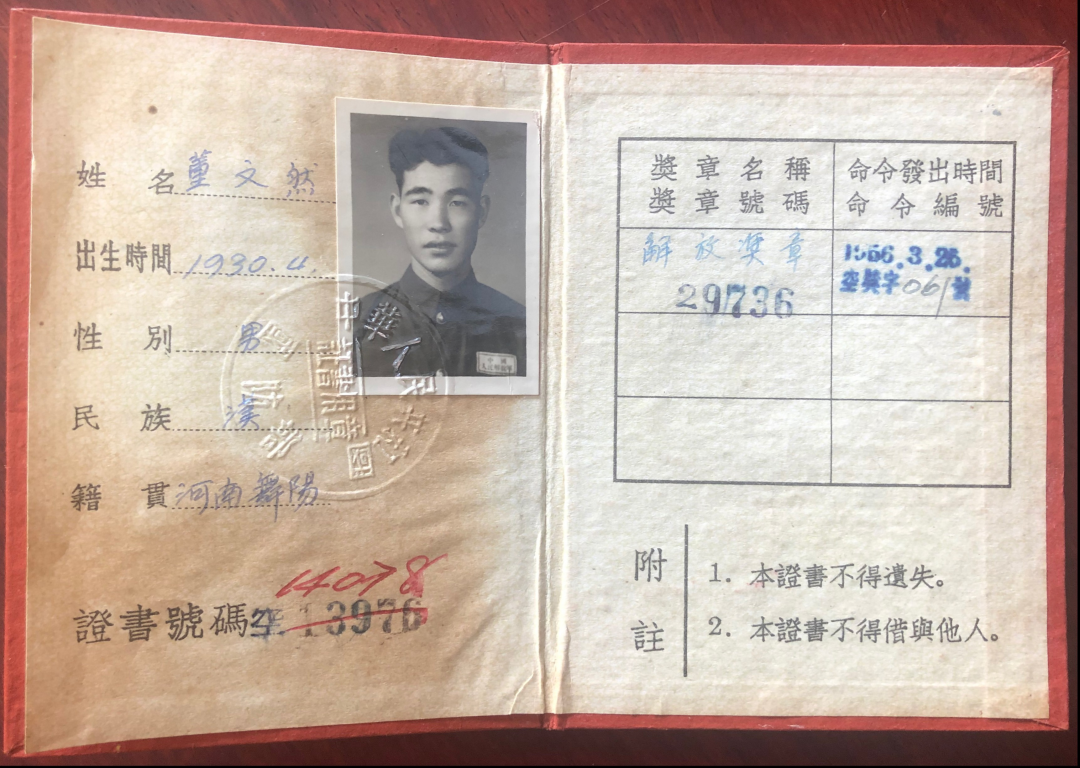 姓名董文然
出生時間1930.4.
性別男
民族漢
籍貫河南舞陽
14078
證書號碼空13976
中華人民共和國
國防部
獎章名稱
獎章號碼
命令發出時間
命令編號
解放奬章
29736
1956.3.26.
空奬字061號
附註
1. 本證書不得遺失。
2. 本證書不得借與他人。